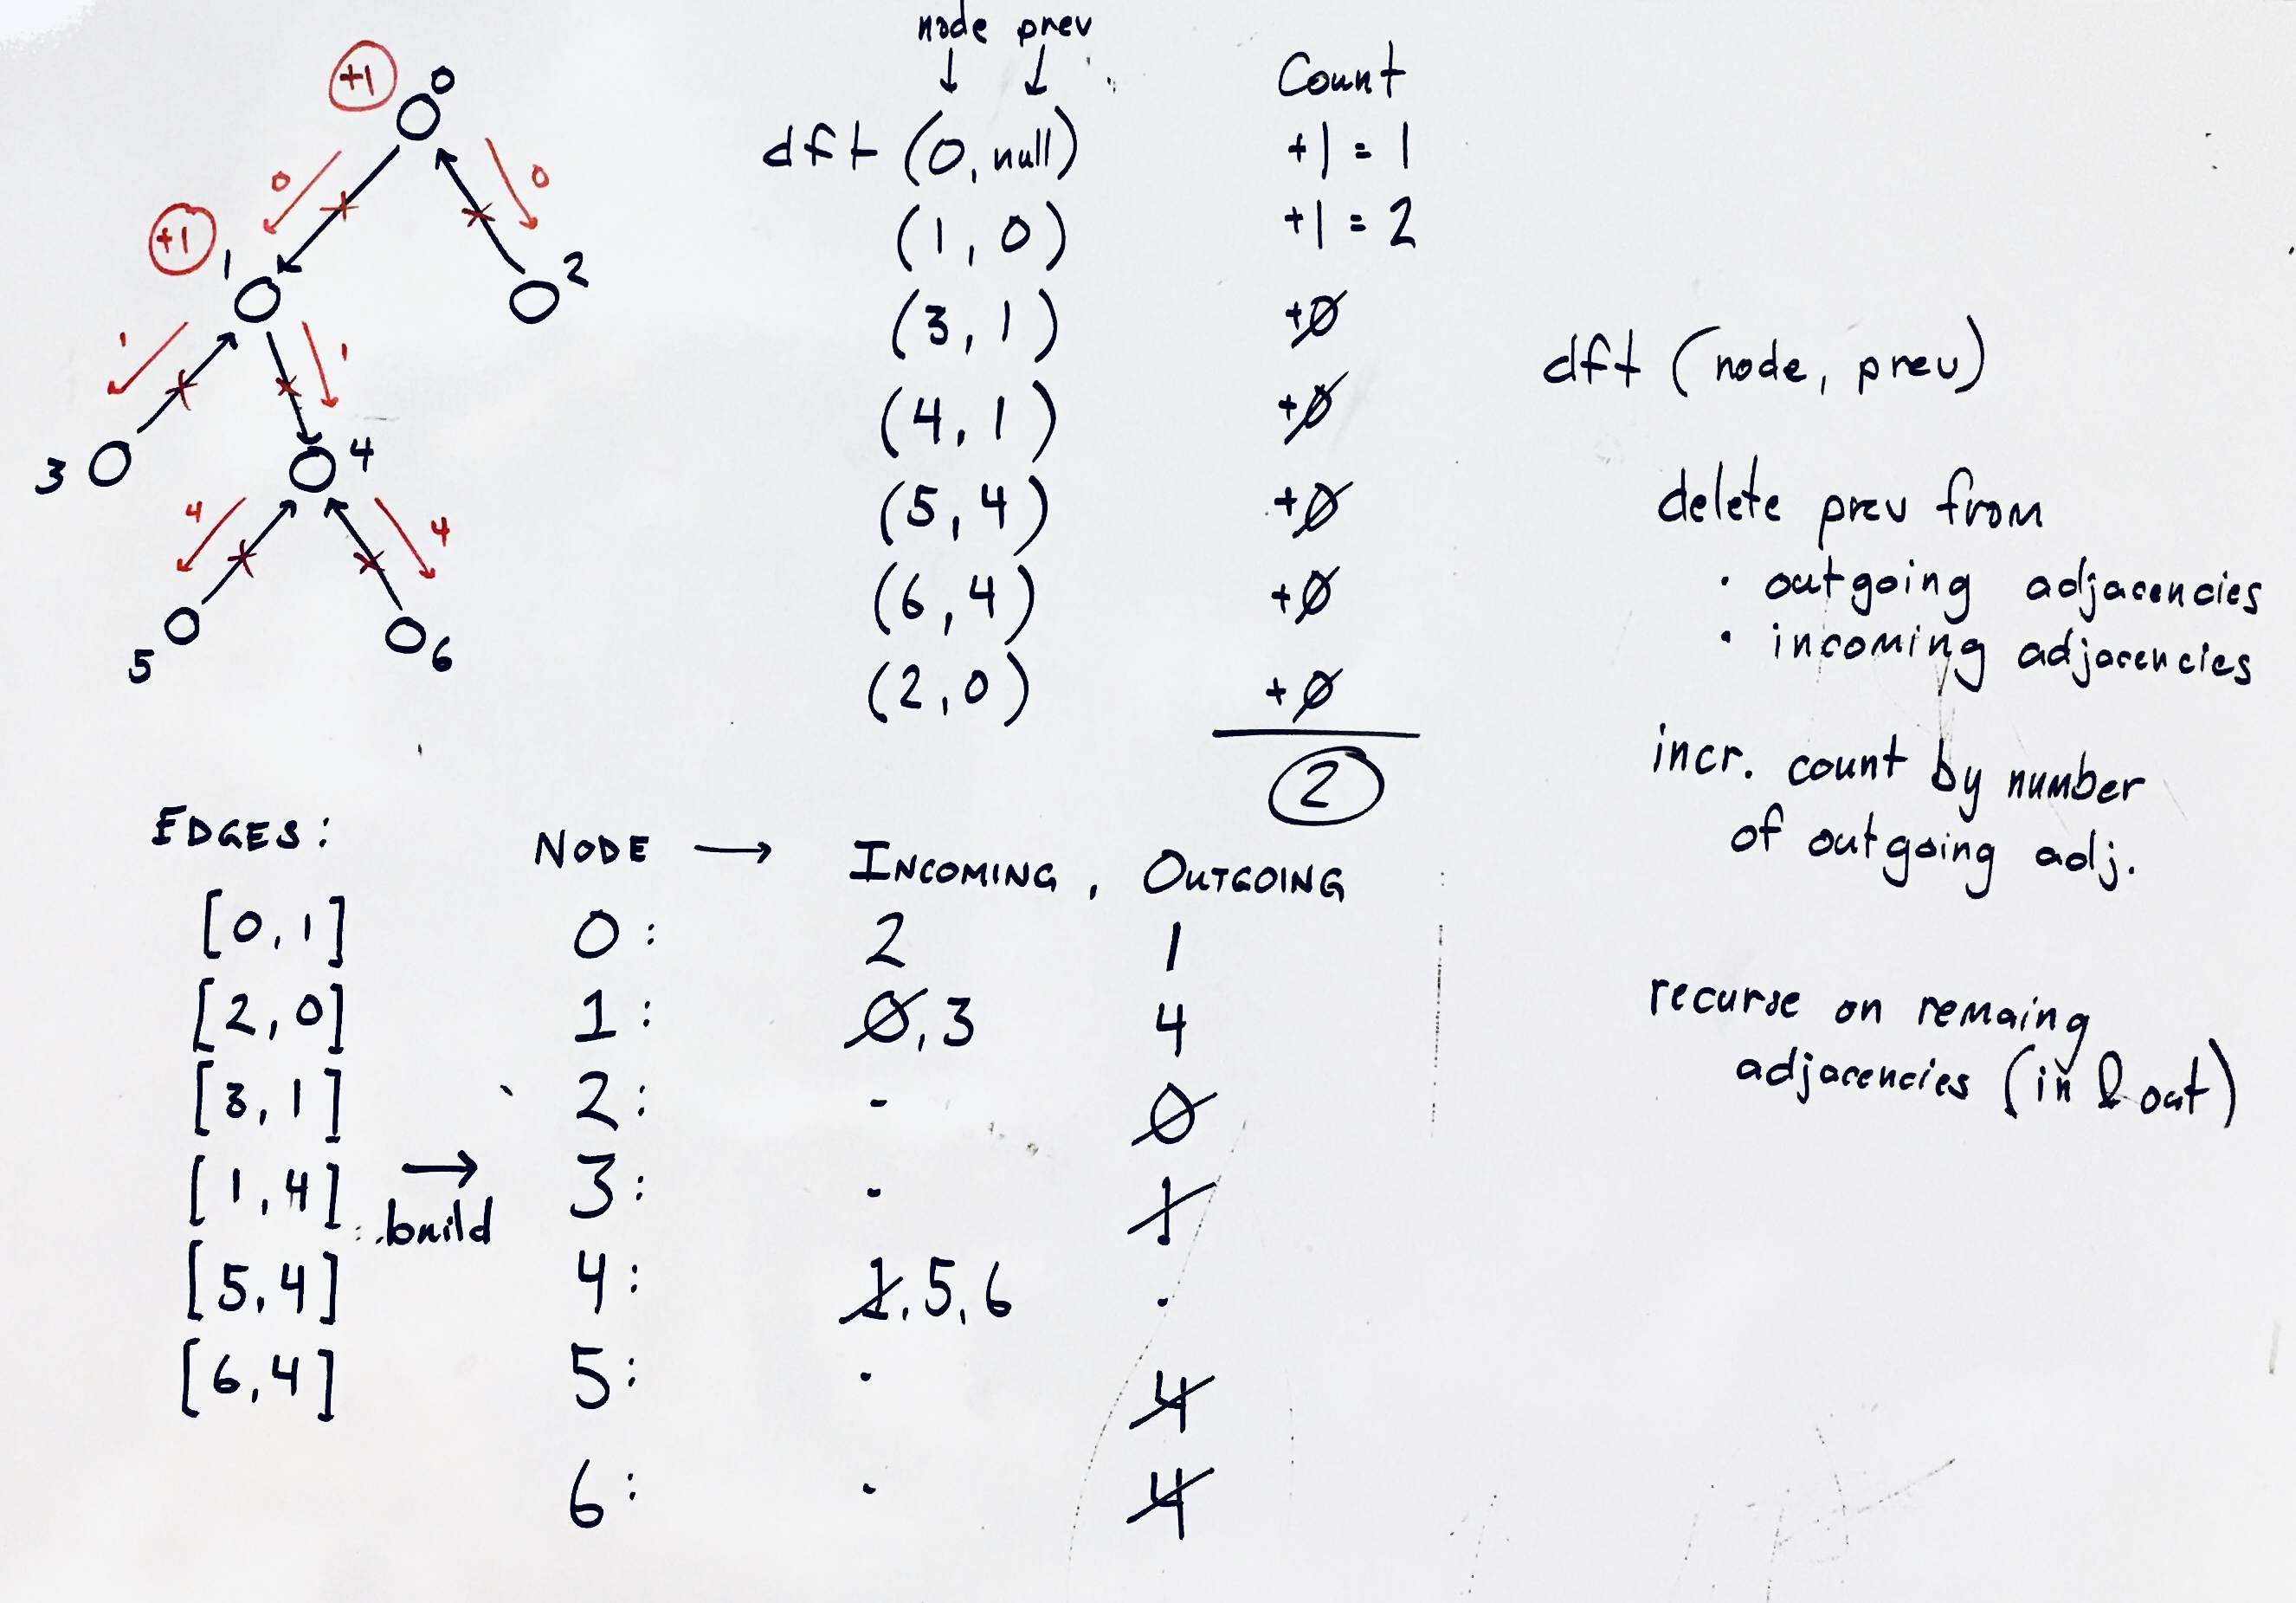 +1
0
0
0
+1
1
2
1
1
3
4
4
4
5
6
node prev
↓ ↓
dft (0, null)
(1, 0)
(3, 1)
(4, 1)
(5, 4)
(6, 4)
(2, 0)
Count
+1 = 1
+1 = 2
+0
+0
+0
+0
+0
2
dft (node, prev)
delete prev from
· outgoing adjacencies
· incoming adjacencies
incr. count by number
of outgoing adj.
recurse on remaing
adjacencies (in & out)
EDGES:
[0, 1]
[2, 0]
[3, 1]
[1, 4]
[5, 4]
[6, 4]
→
build
NODE → INCOMING, OUTGOING
0: 2 1
1: 0, 3 4
2: - 0
3: - 1
4: 1, 5, 6 -
5: - 4
6: - 4